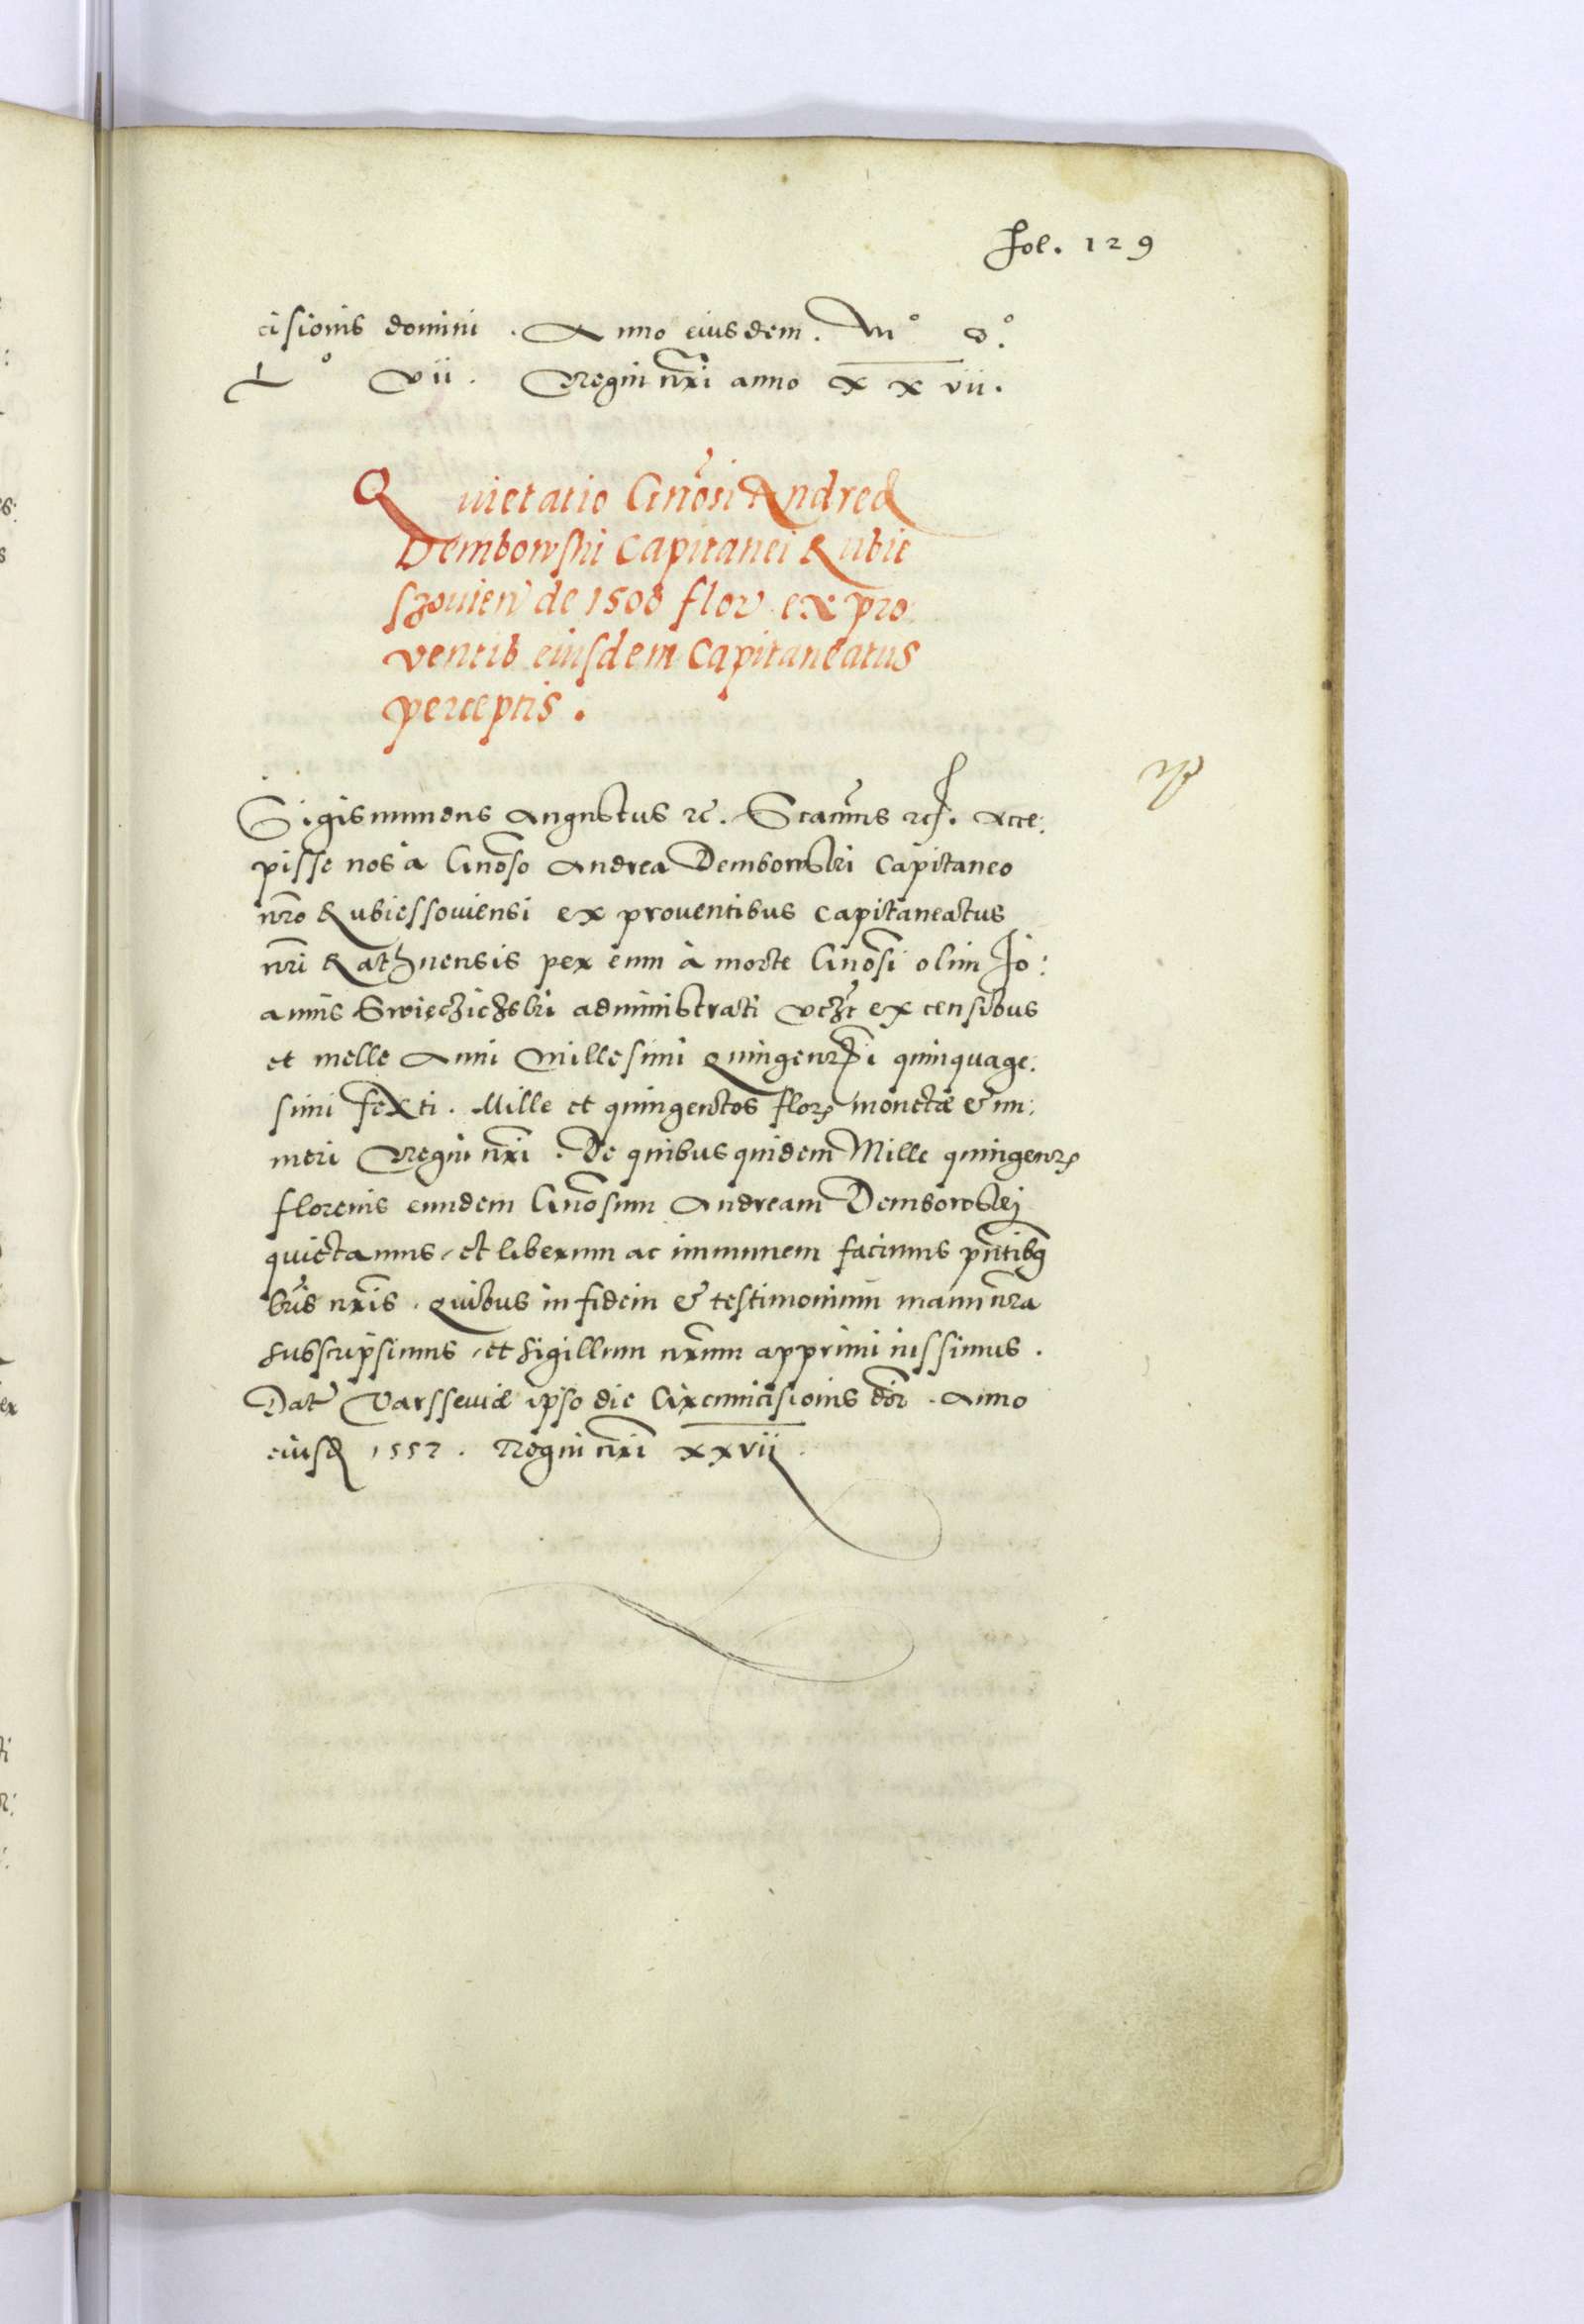 fol. 129
cisionis domini . Anno eiusdem . M° D°
L° vii . Regni nr̃i anno xxvii .
Quietatio Gñosi Andreae
Dembowski Capitanei Rubie
szouien̄ de 1500 flor ex pro:
ventib eiusdem Capitaneatus
perceptis .
Sigismundus Augustus rc̃ . Statuimus . Acce:
pisse nos à Gñoso Andrea Dembowski Capitaneo
nr̃o Rubiessouiensi ex prouentibus Capitaneatus
nr̃i Rathnensis per eum à morte Gñosi olim Io:
annis Swięczichski administrati vczt ex censibus
et melle Anni Millesimi quingentesi quinquage:
simi sexti . Mille et quingentos flor monetae & nu:
meri Regni nr̃i . De quibus quidem Mille quingent
florenis eundem Gñosum Andream Dembowskj
quietamus, et liberum ac immunem facimus pñtibq
lr̃is nr̃is . Quibus in fidem & testimonium manu nr̃a
subscripsimus, et sigillum nr̃um apprimi iussimus .
Dat Varssewiae ipso die Circumcisionis dñi . Anno
eiusd 1557 . Regni nr̃i xxvii